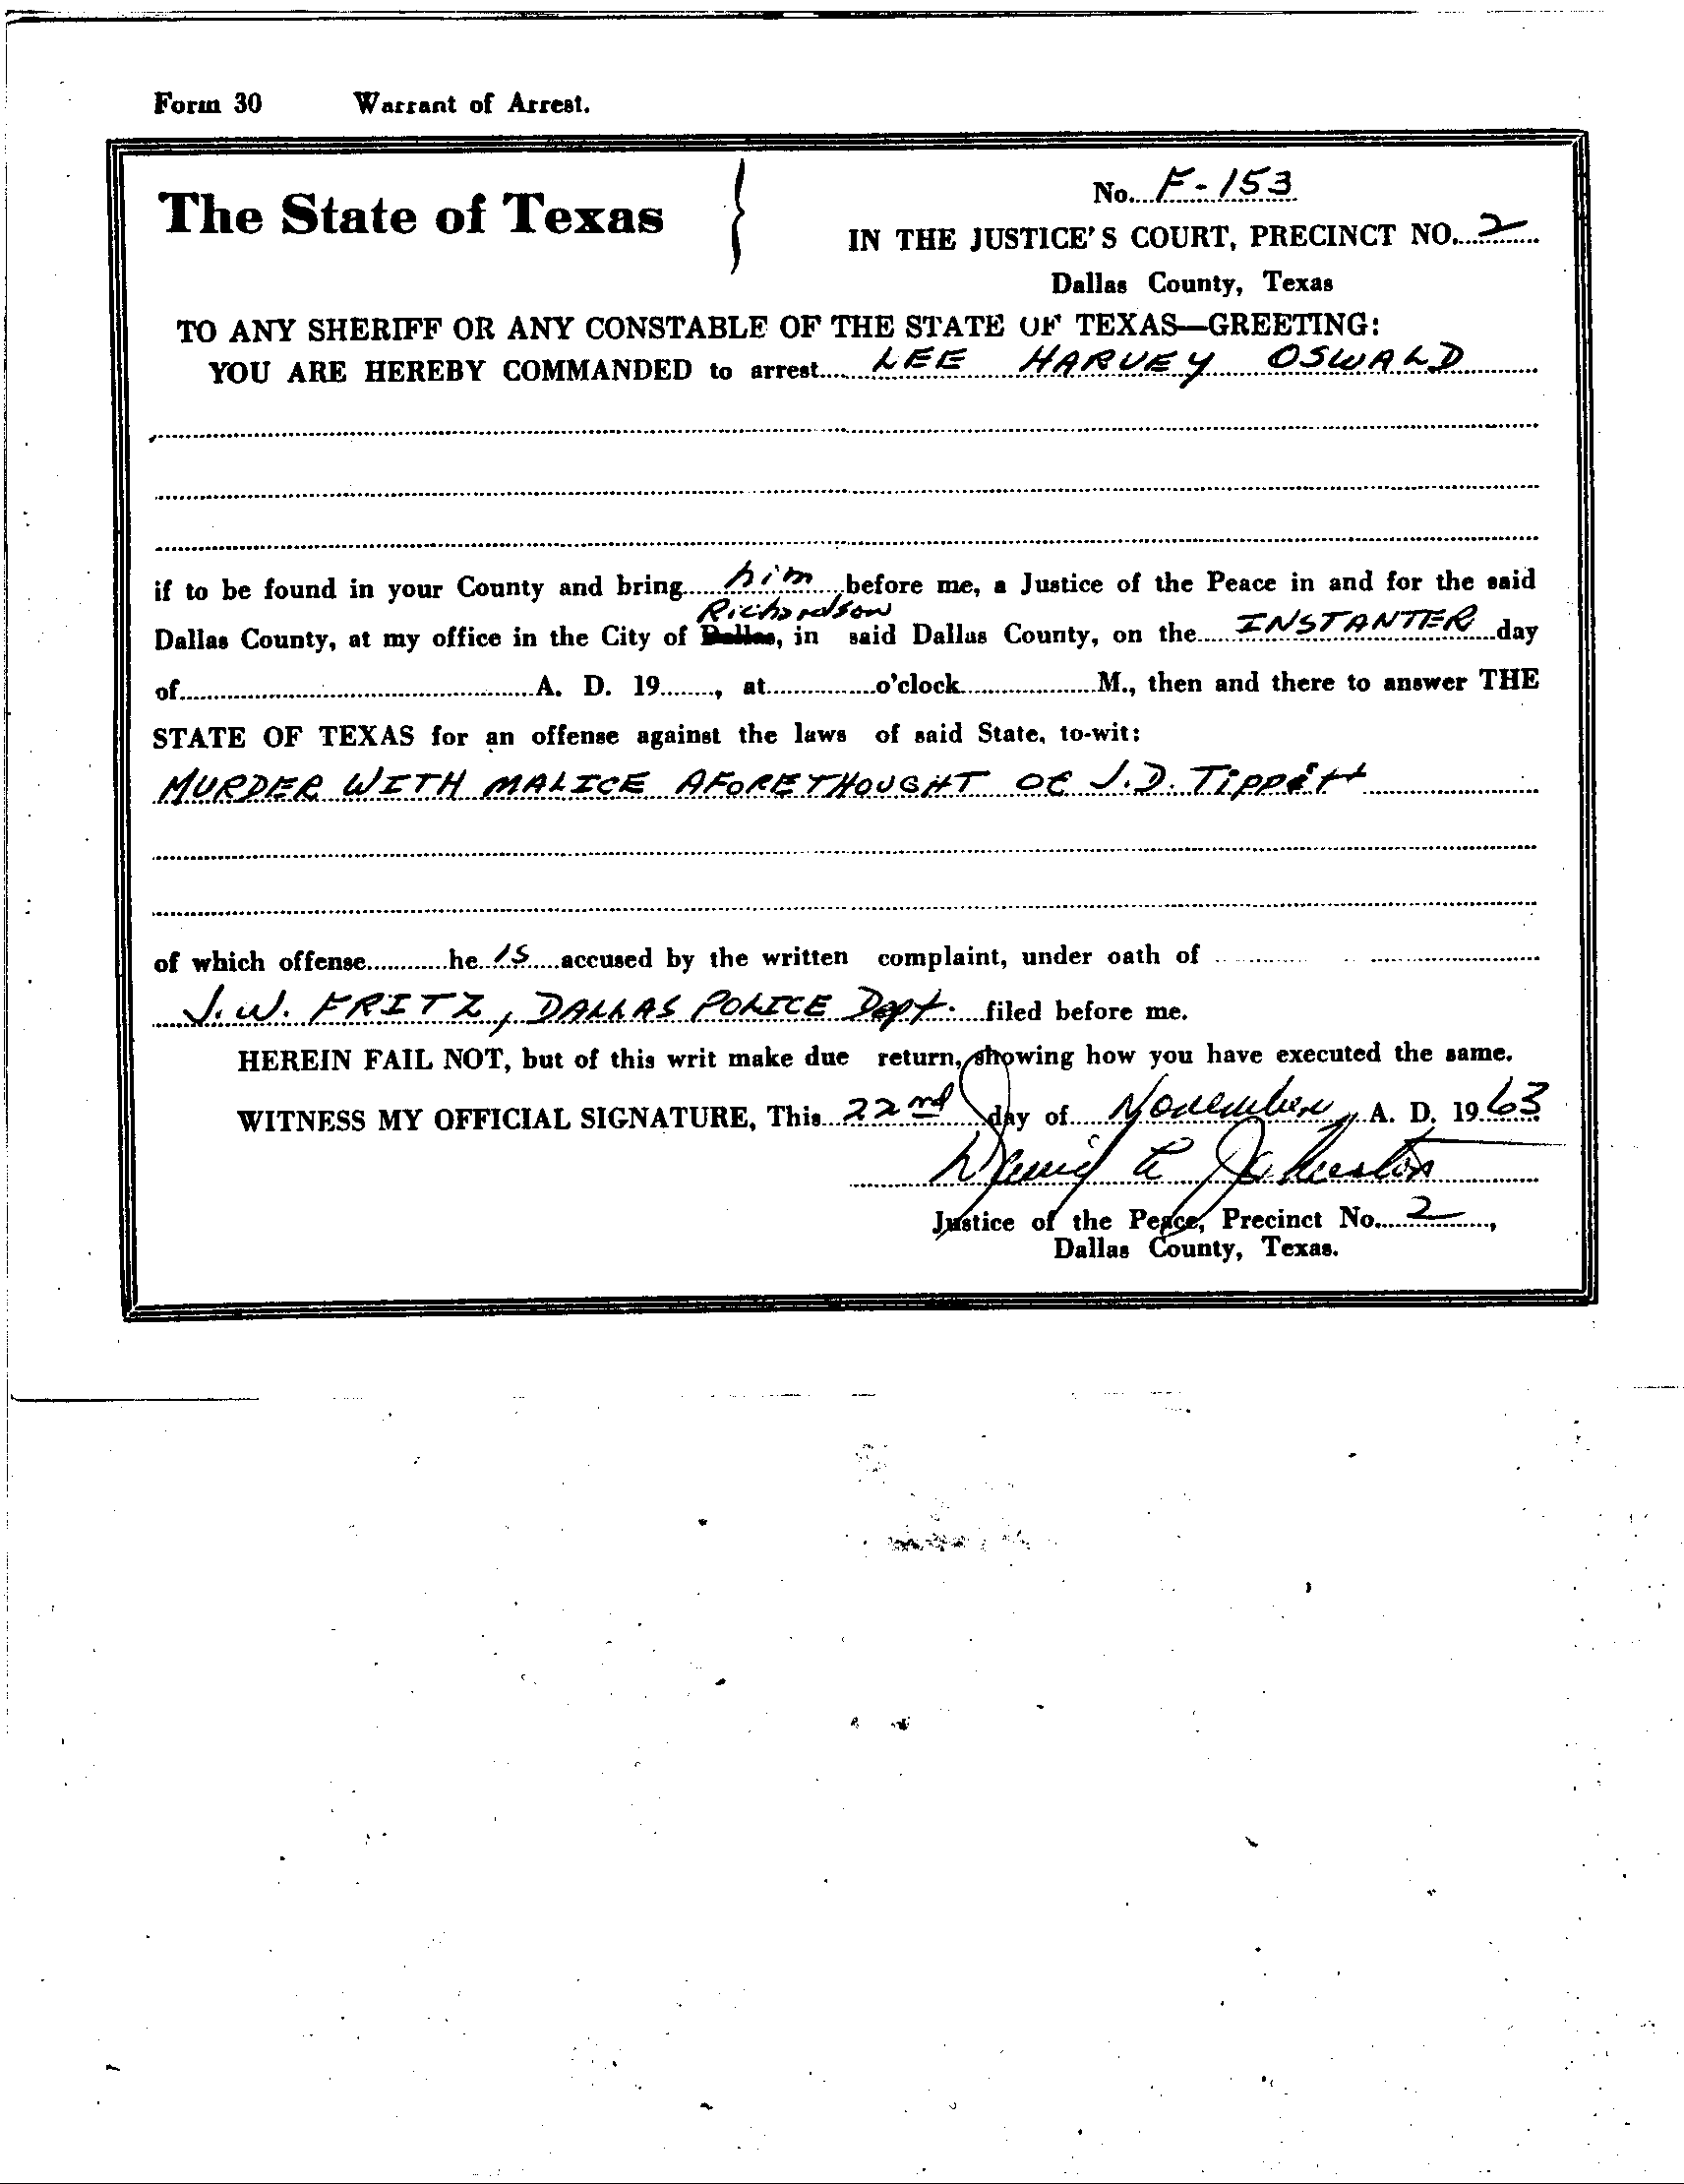 Form 30 Warrant of Arrest.
The State of Texas
No. F-153
IN THE JUSTICE'S COURT, PRECINCT NO. 2
Dallas County, Texas
TO ANY SHERIFF OR ANY CONSTABLE OF THE STATE OF TEXAS—GREETING:
YOU ARE HEREBY COMMANDED to arrest LEE HARVEY OSWALD
if to be found in your County and bring him before me, a Justice of the Peace in and for the said
Richardson
Dallas County, at my office in the City of Dallas, in said Dallas County, on the INSTANTER day
of A. D. 19, at o'clock M., then and there to answer THE
STATE OF TEXAS for an offense against the laws of said State, to-wit:
MURDER WITH MALICE AFORETHOUGHT OF J.D. Tippitt
of which offense he IS accused by the written complaint, under oath of
J. W. FRITZ, DALLAS POLICE Dept. filed before me.
HEREIN FAIL NOT, but of this writ make due return, showing how you have executed the same.
WITNESS MY OFFICIAL SIGNATURE, This 22nd day of November, A. D. 1963
David L Johnston
Justice of the Peace, Precinct No. 2,
Dallas County, Texas.